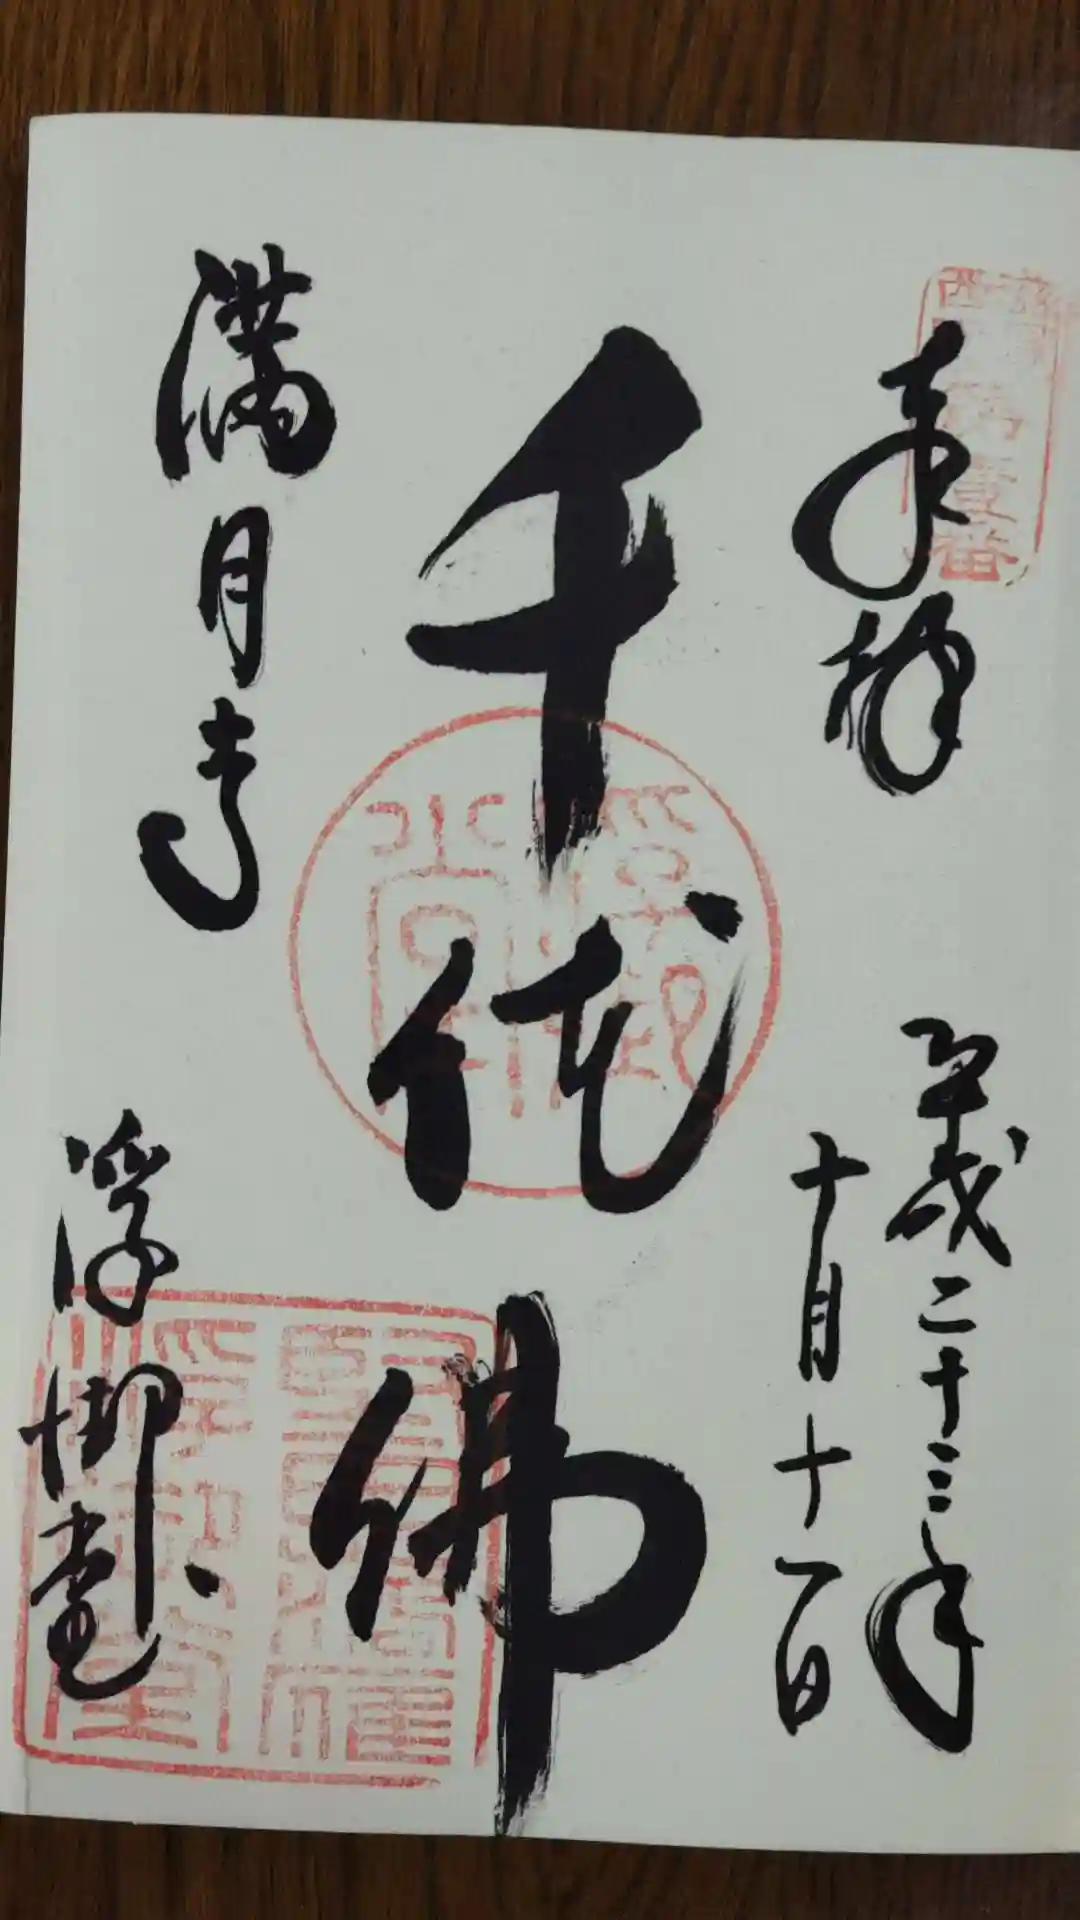 奉拝
平成二十三年
十月十一日
千代佛
満月寺
浮御堂